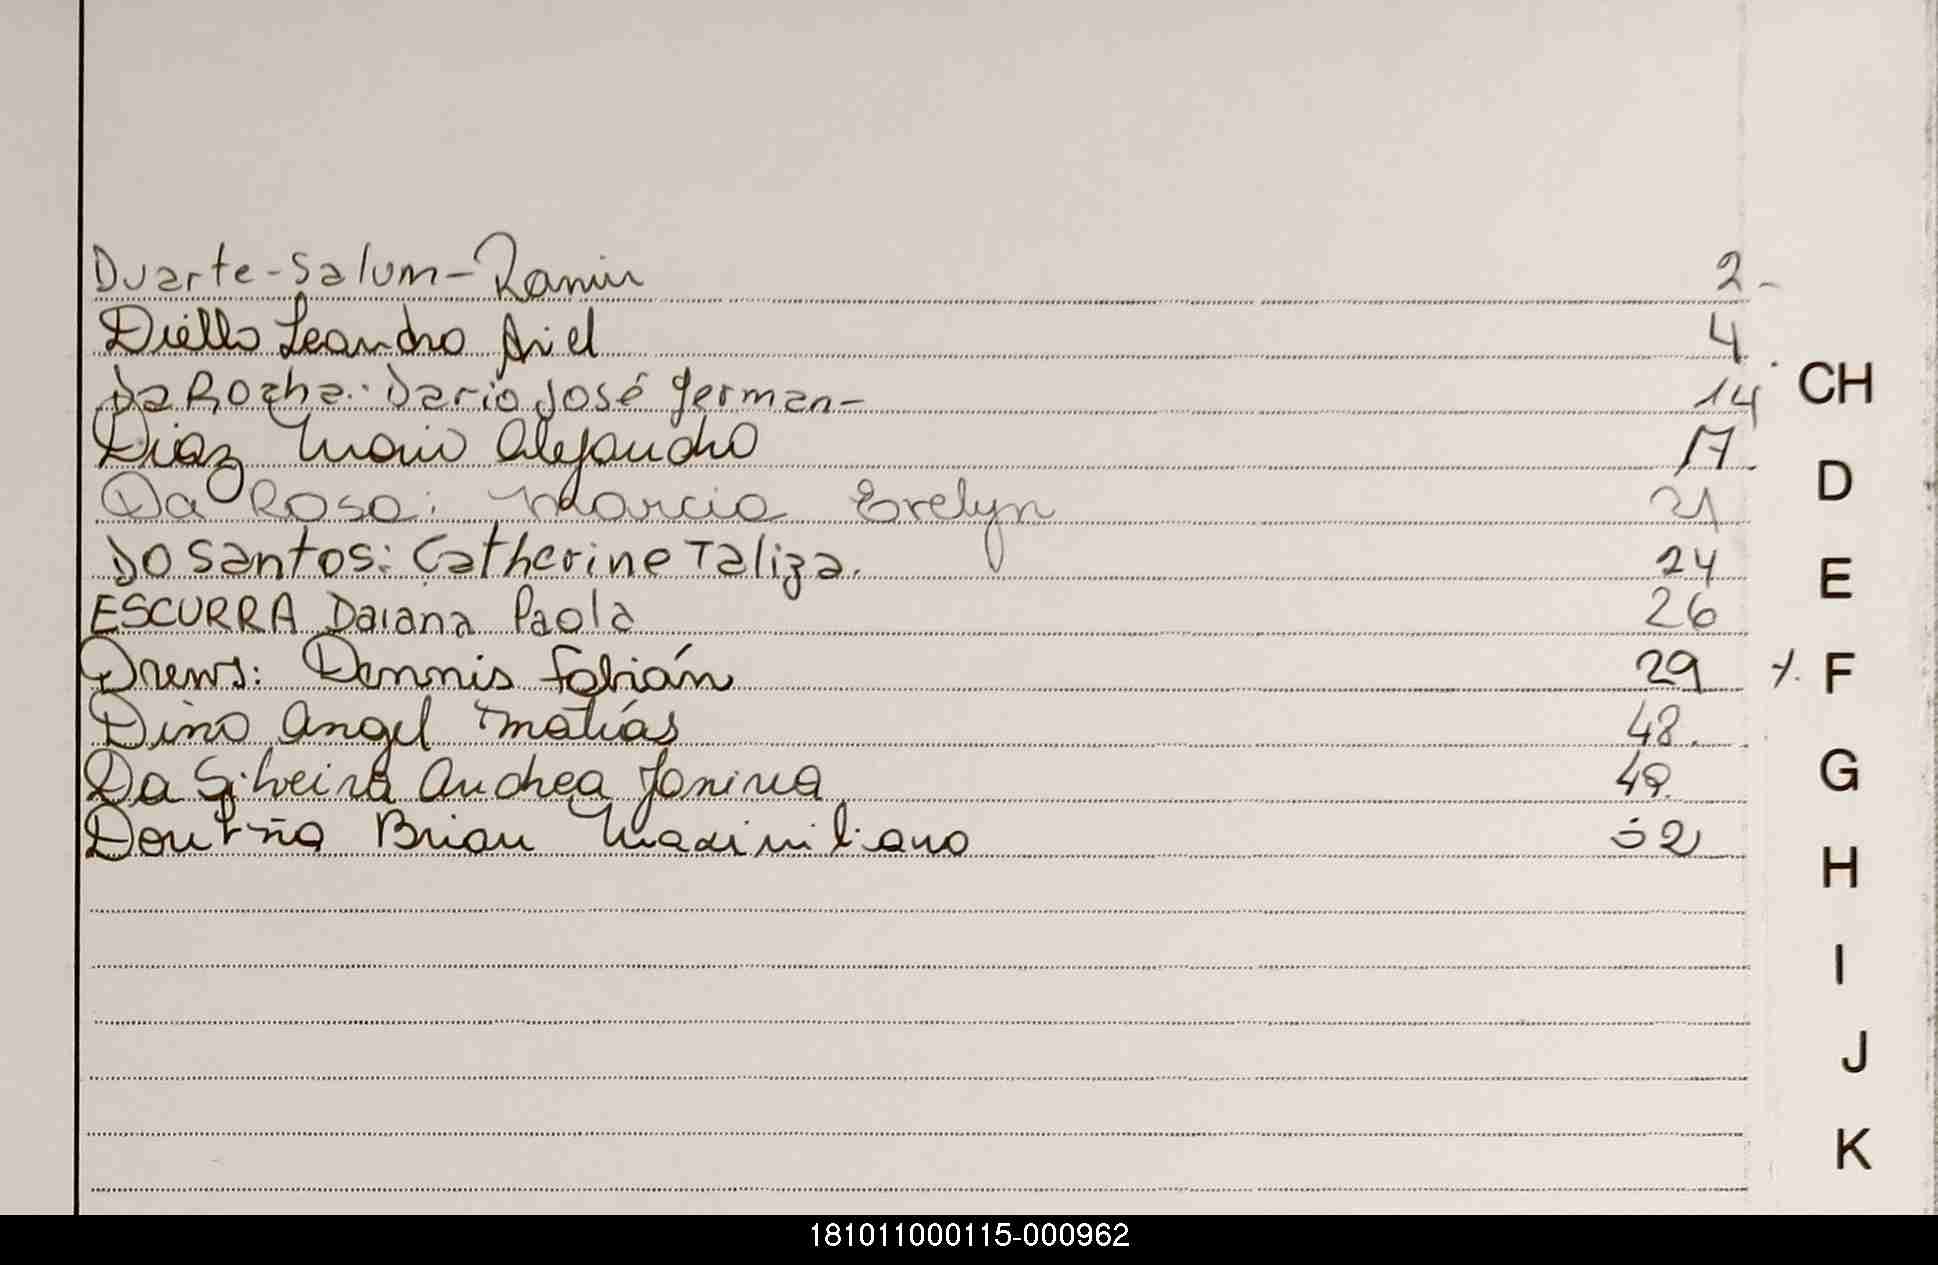 Duarte-Salum-Ramir 2-
Diello Leandro Ariel 4
Da Rocha: Dario José German- 14
Diaz Mario Alejandro 17
Da Rosa: Marcia Evelyn 21
Do Santos: Catherine Taliza. 24
ESCURRA Daiana Paola 26
Drews: Dennis Fabián 29
Dino Angel Matías 48.
Da Silveira Andrea Janina 49.
Brian Maximiliano 52
CH
D
E
F
G
H
I
J
K
181011000115-000962